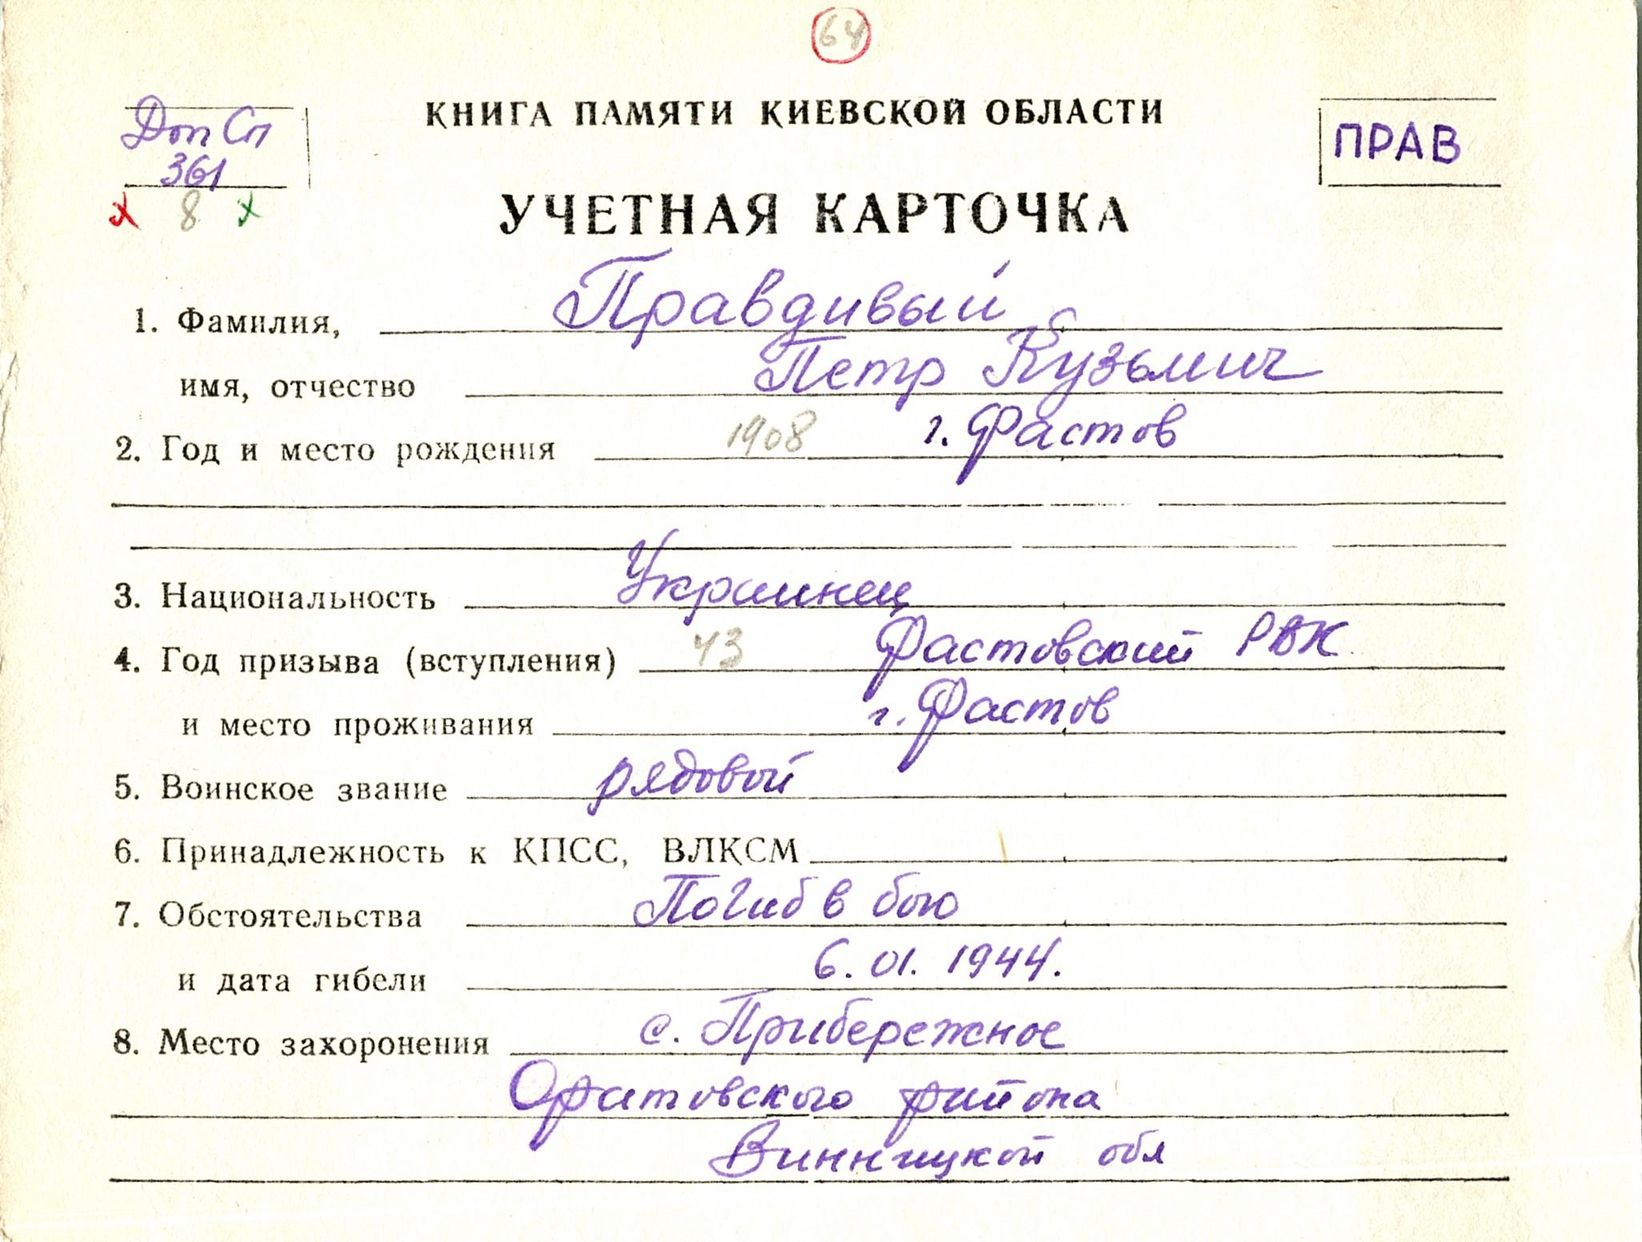 64
КНИГА ПАМЯТИ КИЕВСКОЙ ОБЛАСТИ
Доп Сп
361
х 8 х
ПРАВ
УЧЕТНАЯ КАРТОЧКА
1. Фамилия, Правдивый
имя, отчество Петр Кузьмич
2. Год и место рождения 1908 г. Фастов
3. Национальность Украинец
4. Год призыва (вступления) 43 Фастовский РВК
и место проживания г. Фастов
5. Воинское звание рядовой
6. Принадлежность к КПСС, ВЛКСМ
7. Обстоятельства Погиб в бою
и дата гибели 6.01.1944.
8. Место захоронения с. Прибережное
Оратовского района
Винницкой обл